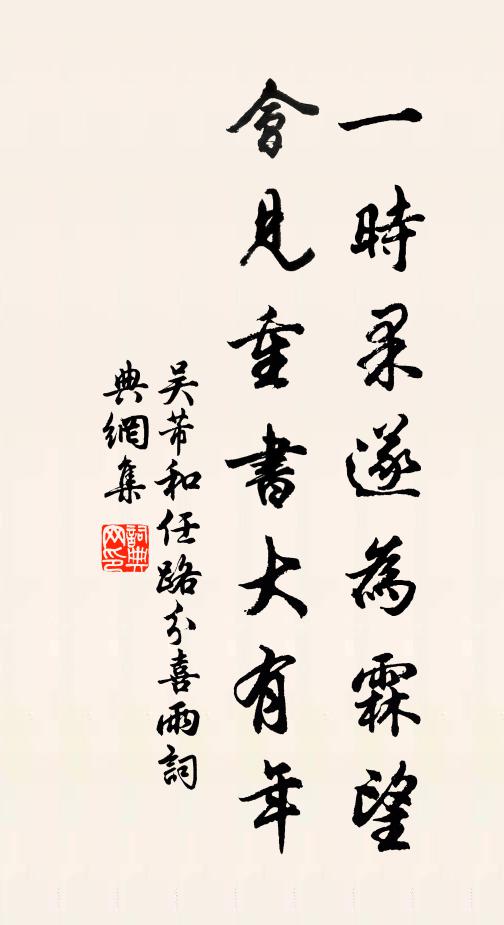 一時果遂為霖望
會見重書大有年
吳芾和任路分喜雨詞
典網集
詞典
网印